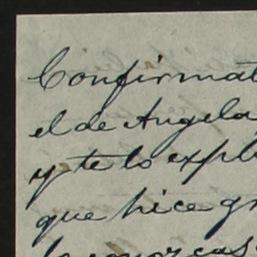 Confirmat
el de Angela
y te lo expli
que hice gr